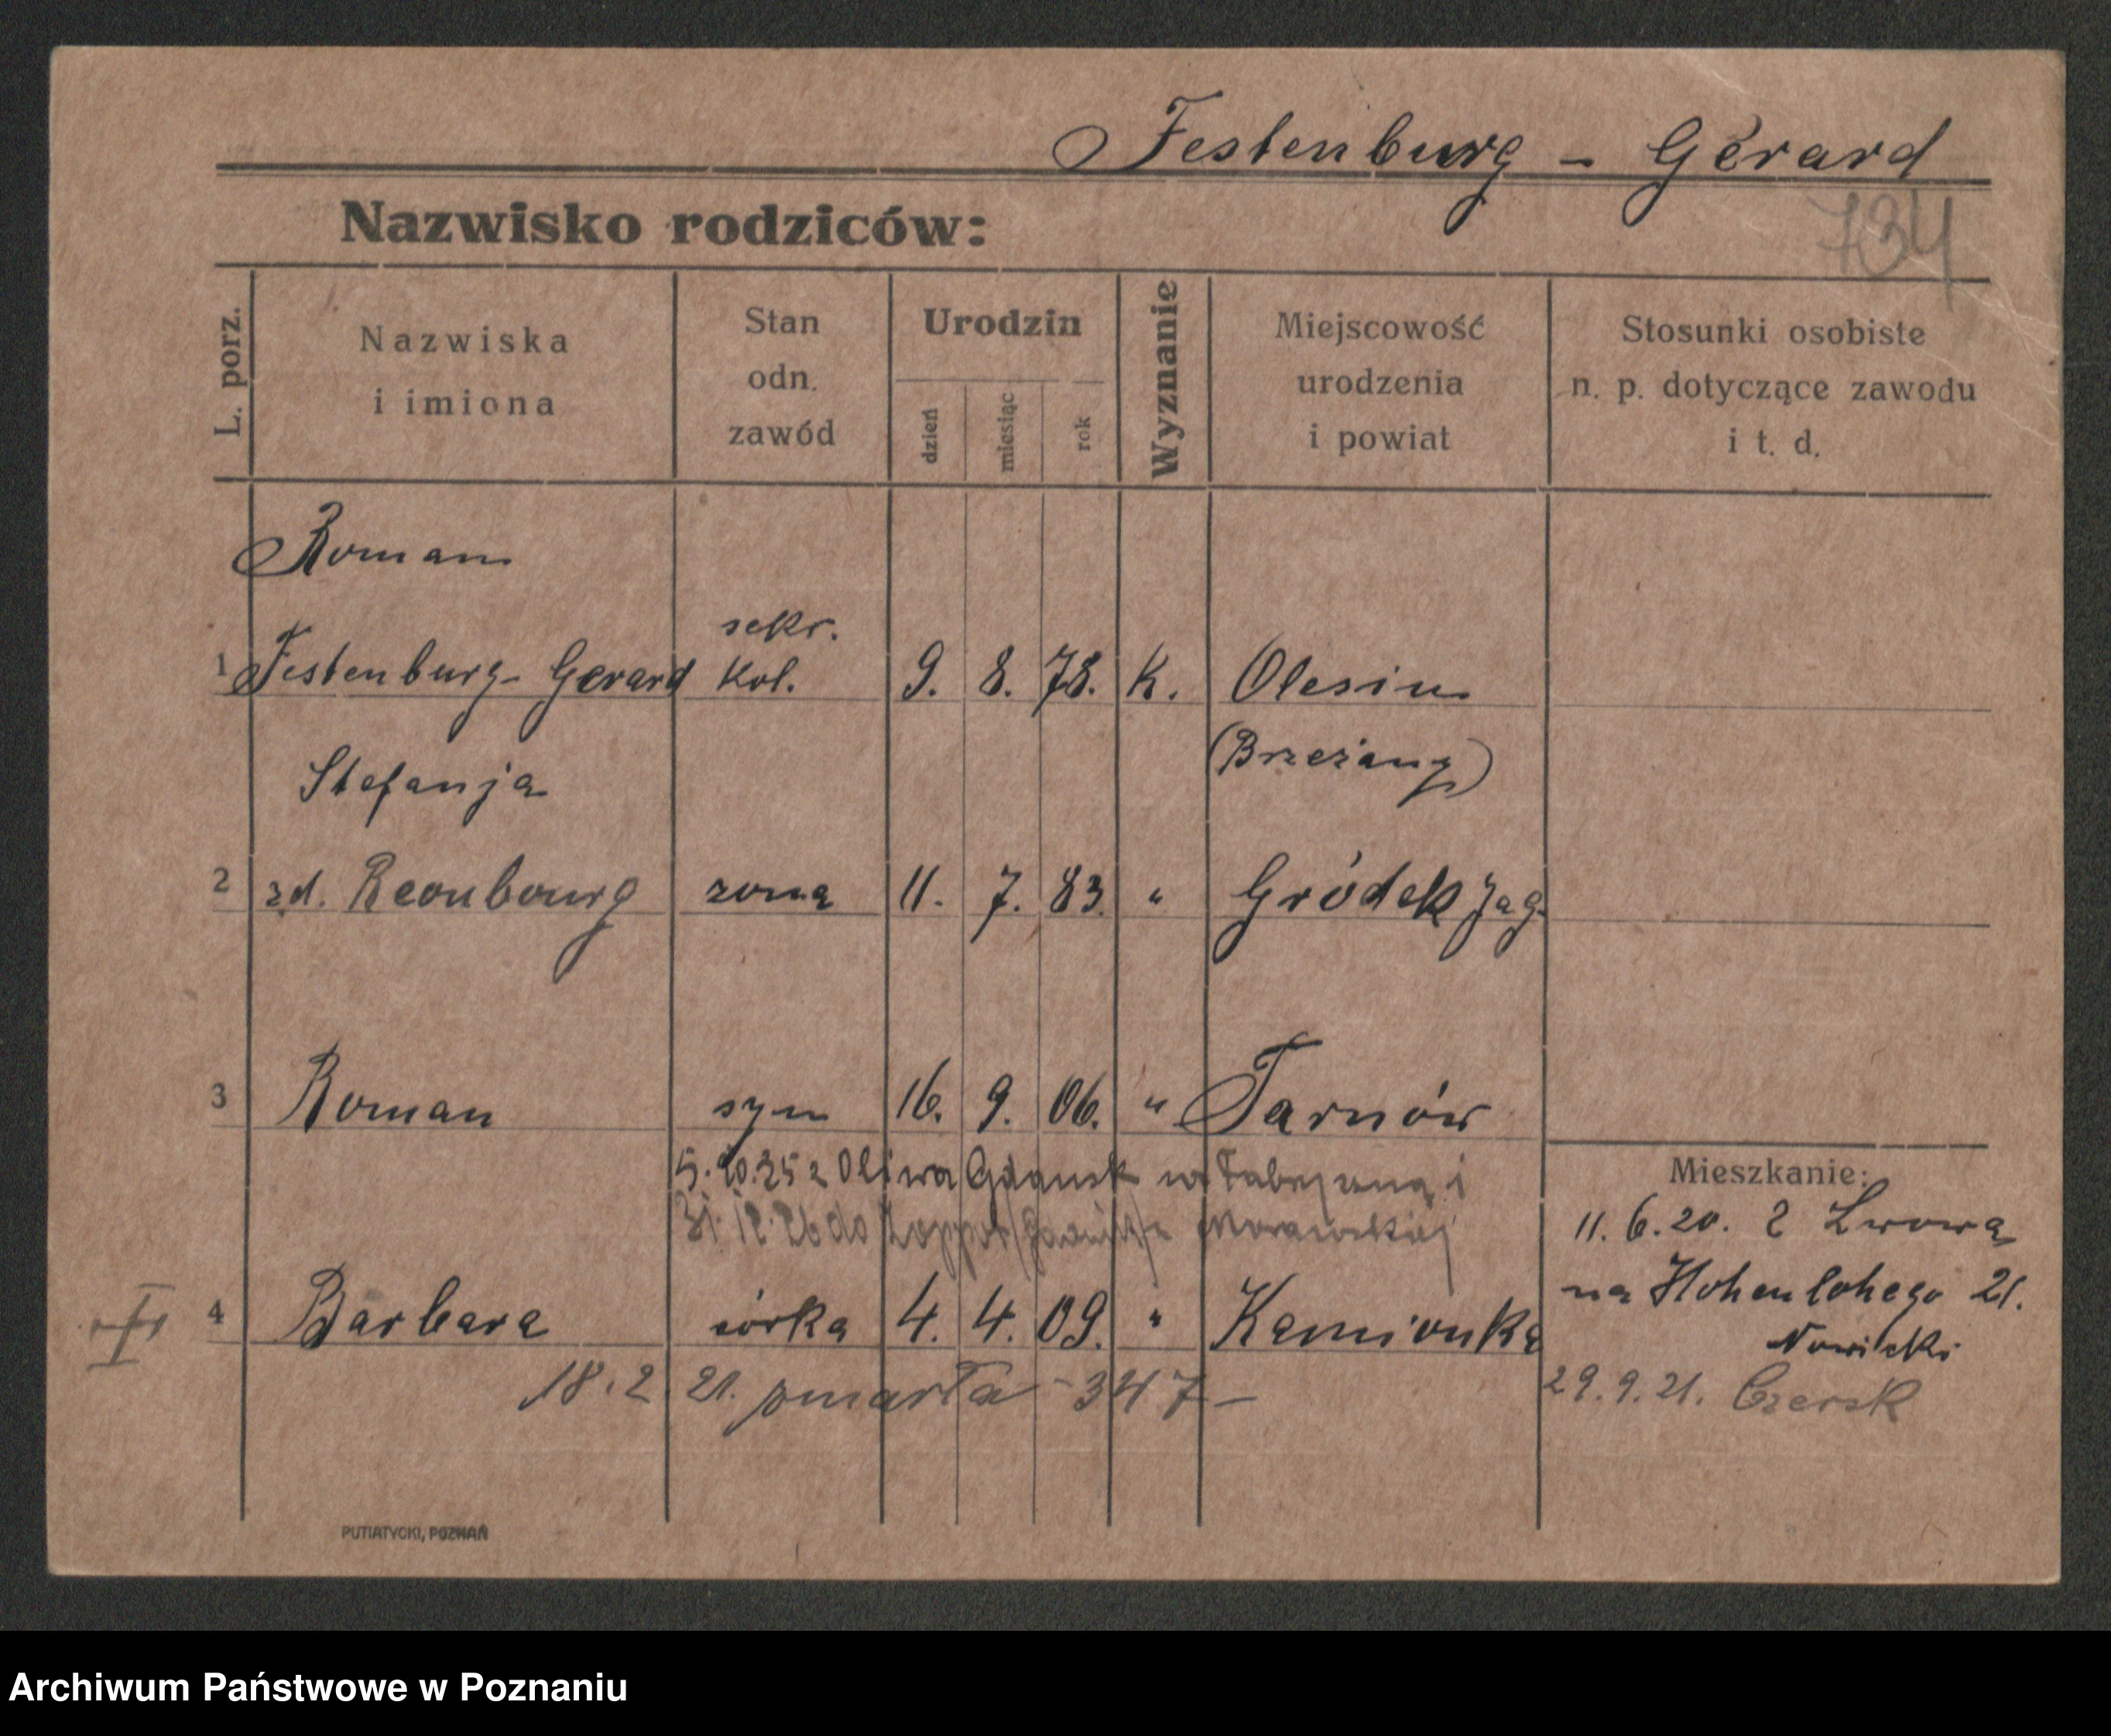 Festenburg - Gerard
734
Nazwisko rodziców:
L. porz.
Nazwiska
i imiona
Stan
odn.
zawód
Urodzin
dzień
miesiąc
rok
Wyznanie
Miejscowość
urodzenia
i powiat
Stosunki osobiste
n. p. dotyczące zawodu
i t. d.
Roman
1 Festenburg- Gerard sekr. Kol. 9. 8. 78. K. Olesin
(Brzeżany)
Stefanja
2 zd. żona 11. 7. 83. " Gródek Jag.
3 Roman syn 16. 9. 06. " Tarnów
5. 10. 25 z Oliwa Gdańsk
31. 12. 26 do
Mieszkanie:
11. 6. 20. z Lwowa
na Hohenlohego 21.
Nowicki
4 Barbara córka 4. 4. 09. " Kamionka
18. 2. 21. zmarła - 347 -
29. 9. 21. Czersk
PUTIATYCKI, POZNAŃ
Archiwum Państwowe w Poznaniu